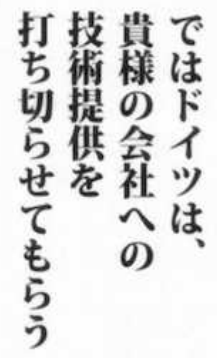 ではドイツは、
貴様の会社への
技術提供を
打ち切らせてもらう